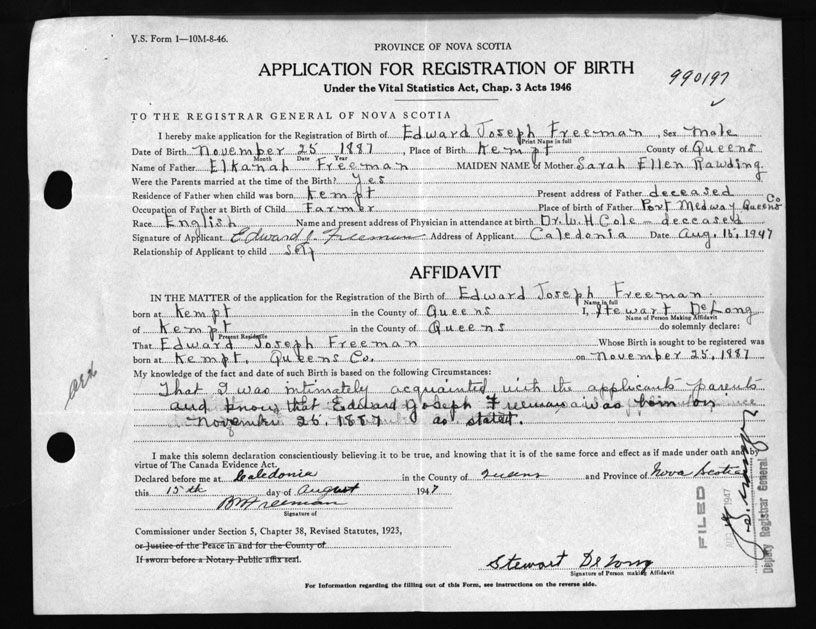 V.S. Form 1—10M-8-46.
PROVINCE OF NOVA SCOTIA
APPLICATION FOR REGISTRATION OF BIRTH
990197
Under the Vital Statistics Act, Chap. 3 Acts 1946
TO THE REGISTRAR GENERAL OF NOVA SCOTIA
I hereby make application for the Registration of Birth of Edward Joseph Freeman, Sex Male
Print Name in full
Date of Birth November 25 1887, Place of Birth Kempt County of Queens
Month Date Year
Name of Father Elkanah Freeman MAIDEN NAME of Mother Sarah Ellen Rawding
Were the Parents married at the time of the Birth? Yes
Residence of Father when child was born Kempt Present address of Father deceased
Occupation of Father at Birth of Child Farmer Place of birth of Father Port Medway Queens Co
Race English Name and present address of Physician in attendance at birth Dr. W. H Cole - deceased
Signature of Applicant Edward J. Freeman Address of Applicant Caledonia Date Aug. 15, 1947
Relationship of Applicant to child Self
AFFIDAVIT
IN THE MATTER of the application for the Registration of the Birth of Edward Joseph Freeman
Name in full
born at Kempt in the County of Queens I, Stewart DeLong
Name of Person Making Affidavit
of Kempt in the County of Queens do solemnly declare:
Present Residence
That Edward Joseph Freeman Whose Birth is sought to be registered was
born at Kempt, Queens Co. on November 25, 1887
My knowledge of the fact and date of such Birth is based on the following Circumstances:
That I was intimately acquainted with the applicants parents
and know that Edward Joseph Freeman was born on
November 25, 1887 as stated.
I make this solemn declaration conscientiously believing it to be true, and knowing that it is of the same force and effect as if made under oath and
virtue of The Canada Evidence Act.
Declared before me at Caledonia in the County of Queens and Province of Nova Scotia
this 15th day of August 1947
Freeman
Signature of
Commissioner under Section 5, Chapter 38, Revised Statutes, 1923,
or Justice of the Peace in and for the County of
If sworn before a Notary Public affix seal.
Stewart DeLong
Signature of Person making Affidavit
For Information regarding the filling out of this Form, see instructions on the reverse side.
FILED
1947
Deputy Registrar General